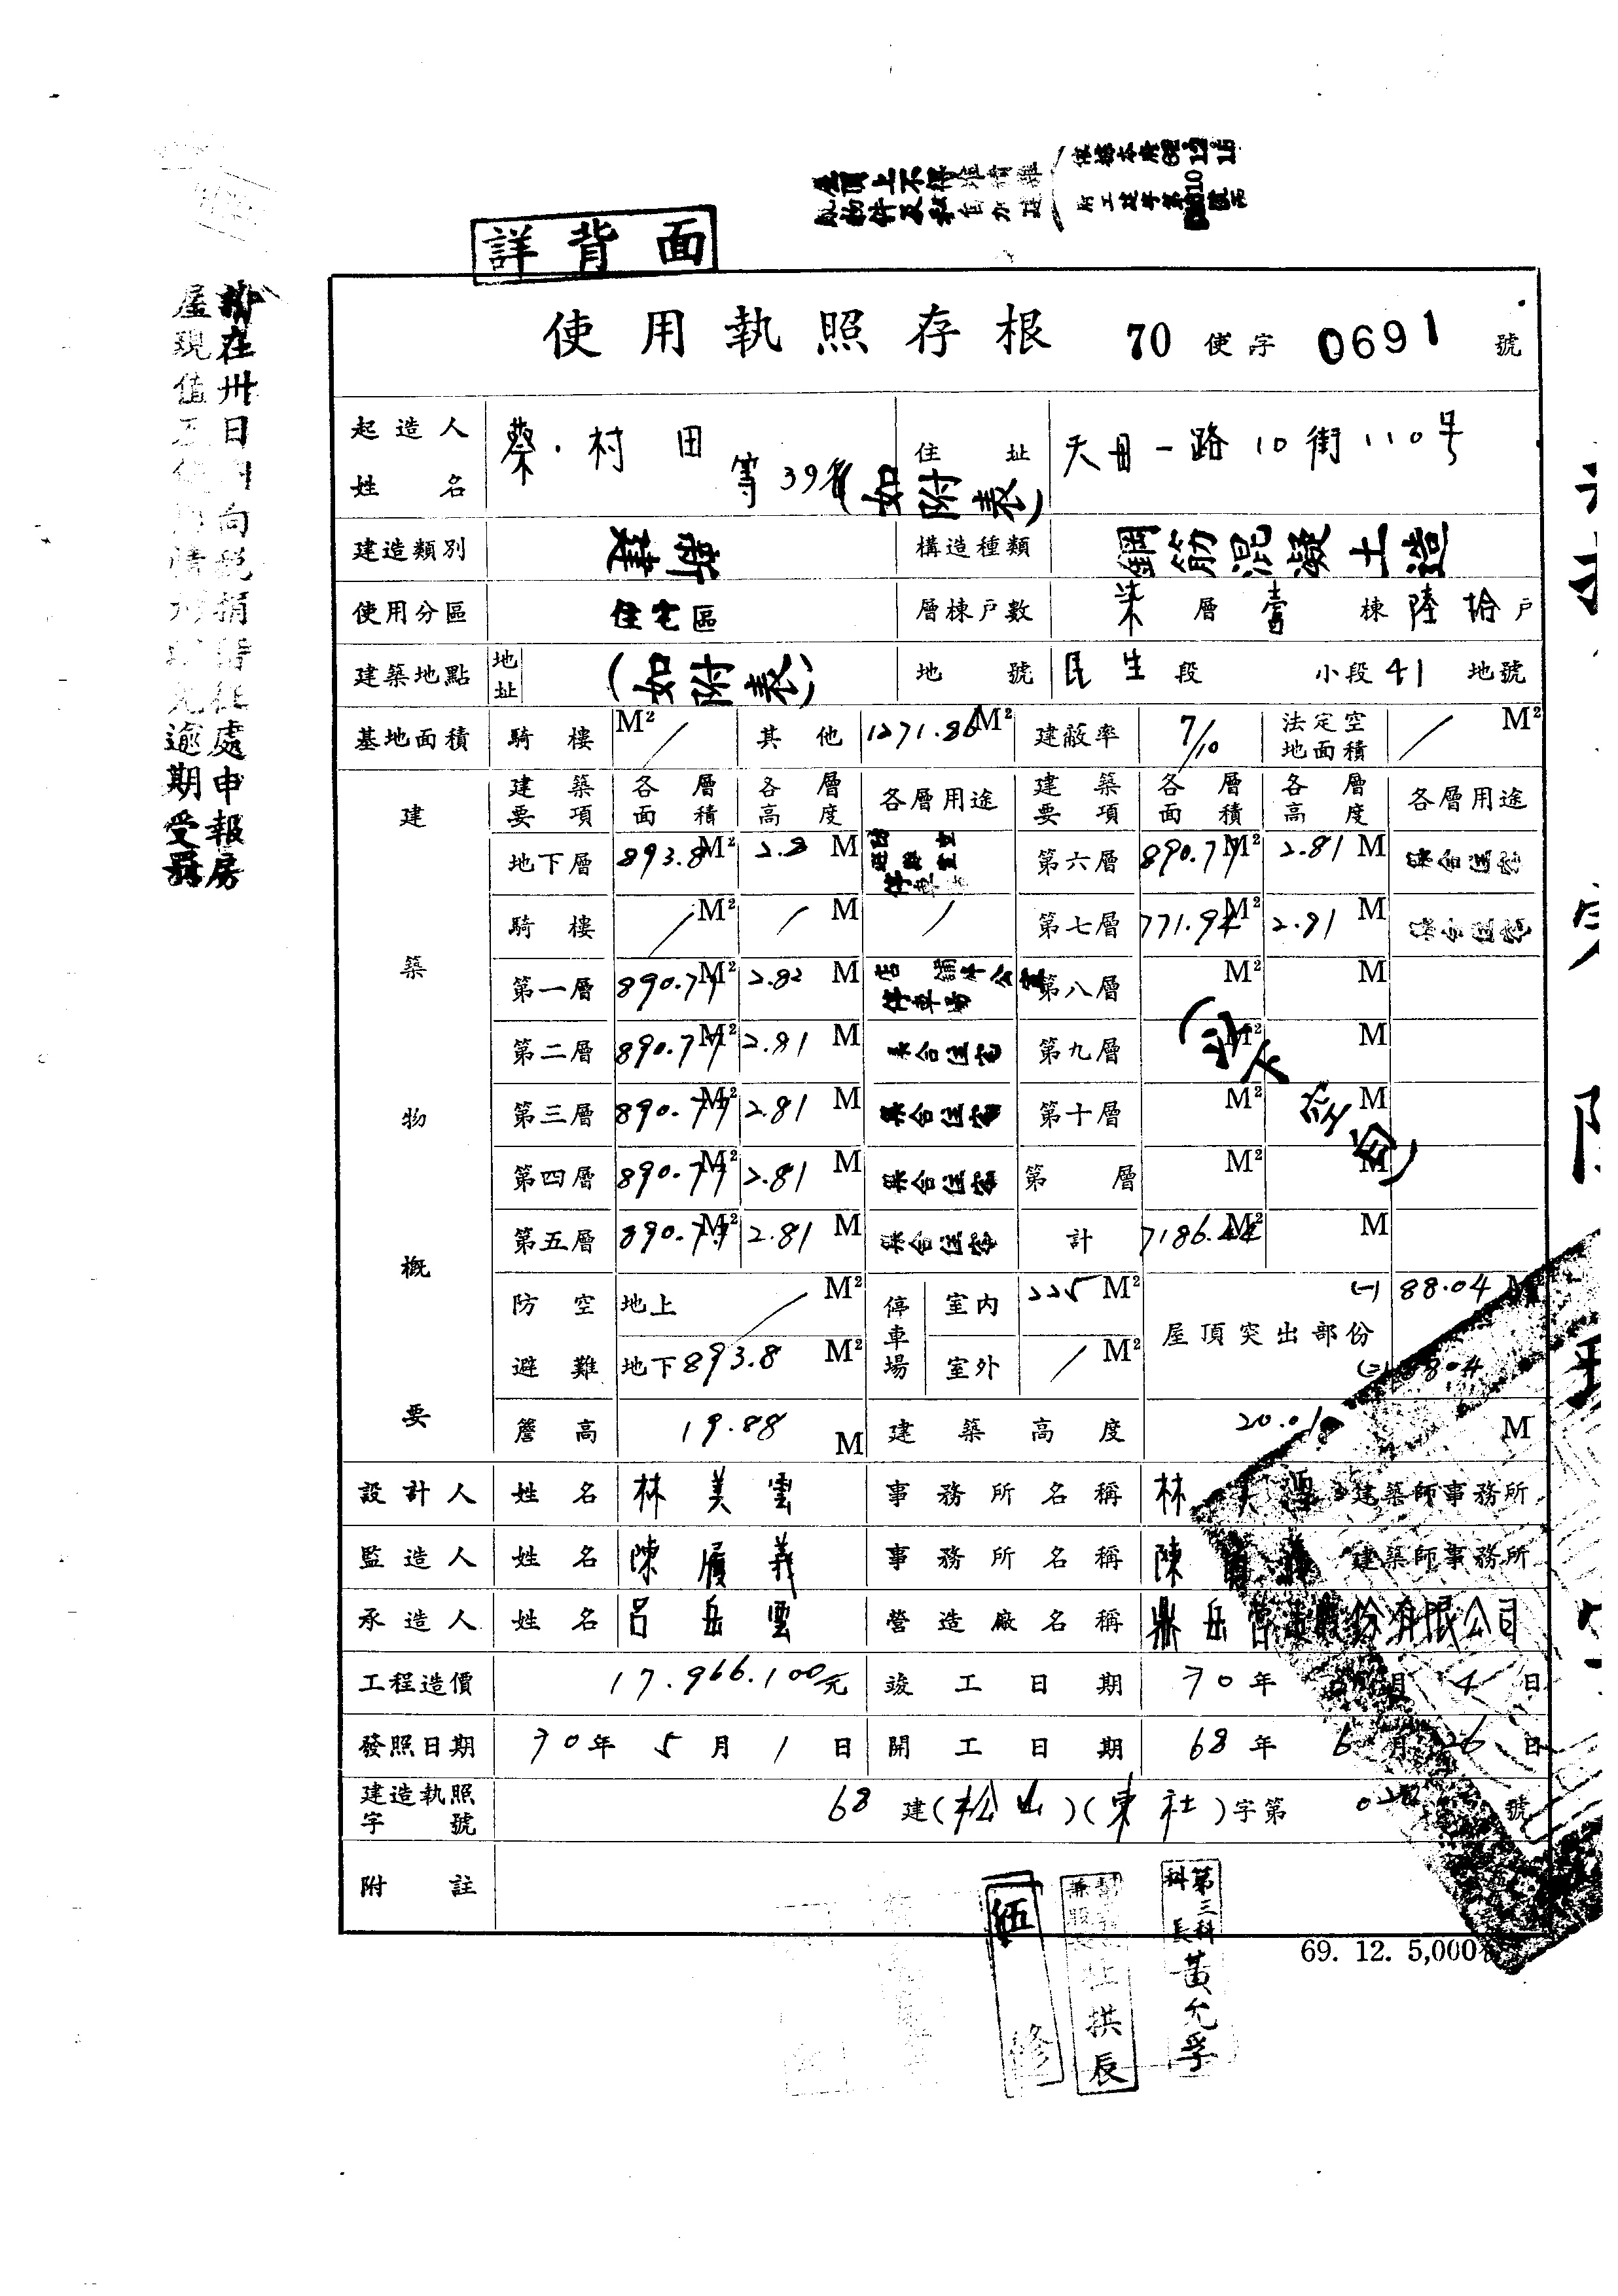 詳背面
使用執照存根 70 使字 0691 號
起造人姓名 蔡村田 等39名(如附表) 住址 天母一路10街110号
建造類別 新建 構造種類 鋼筋混凝土造
使用分區 住宅區 層棟戶數 柒層壹棟陸拾戶
建築地點 地址 (如附表) 地號 民生段 小段41地號
基地面積 騎樓 / M² 其他 1271.86 M² 建蔽率 7/10 法定空地面積 / M²
建築物概要
建築要項 各層面積 各層高度 各層用途 建築要項 各層面積 各層高度 各層用途
地下層 893.8 M² 2.8 M 第六層 890.77 M² 2.81 M 集合住宅
騎樓 / M² / M / 第七層 771.94 M² 2.81 M 集合住宅
第一層 890.77 M² 2.82 M 停車場 第八層 M² M
第二層 890.77 M² 2.81 M 集合住宅 第九層 M² M
第三層 890.77 M² 2.81 M 集合住宅 第十層 M² M
(以下空白)
第四層 890.77 M² 2.81 M 集合住宅 第 層 M² M
第五層 890.77 M² 2.81 M 集合住宅 計 7186.44 M² M
防空避難 地上 / M² 停車場 室內 225 M² 屋頂突出部份 (一) 88.04
地下 893.8 M² 室外 / M² (二) 88.04
簷高 19.88 M 建築高度 20.01 M
設計人 姓名 林美雲 事務所名稱 林美雲建築師事務所
監造人 姓名 陳履義 事務所名稱 陳履義建築師事務所
承造人 姓名 呂岳雲 營造廠名稱 鼎岳營造股份有限公司
工程造價 17.966.100元 竣工日期 70年 月 4日
發照日期 70年5月1日 開工日期 68年6月26日
建造執照字號 68建(松山)(東社)字第 號
附註
69. 12. 5,000
第三科科長 黃允孚
拱辰
伍 修
日 向稅捐 處申報房
屋現值 逾期受罰